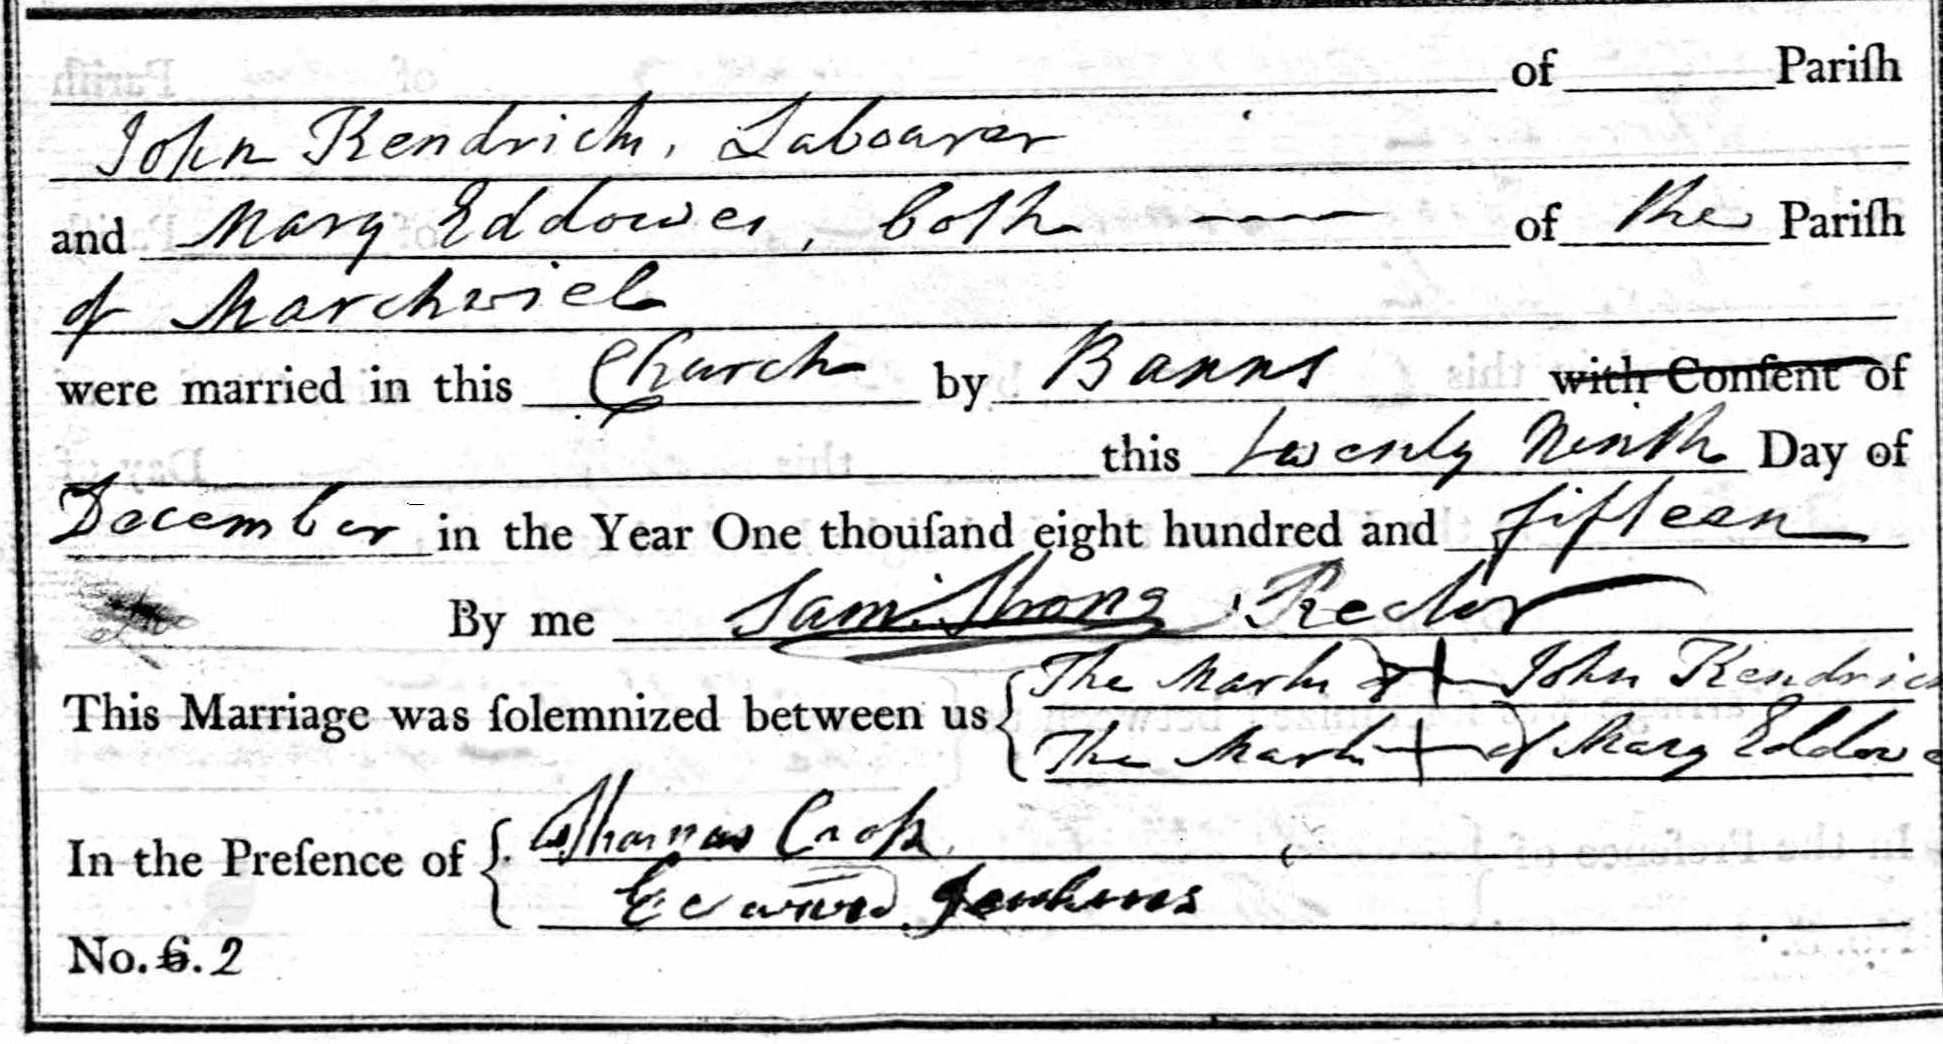 of Pariſh
John Kendrick, Labourer
and Mary Eddowes, both of the Pariſh
of Marchwiel
were married in this Church by Banns with Conſent of
this twenty Ninth Day of
December in the Year One thouſand eight hundred and fifteen
By me Sam. Strong, Rector
This Marriage was ſolemnized between us { The Mark + John Kendrick
The Mark + of Mary Eddowe
In the Preſence of { Thomas
Edward Jenkins
No. 6. 2